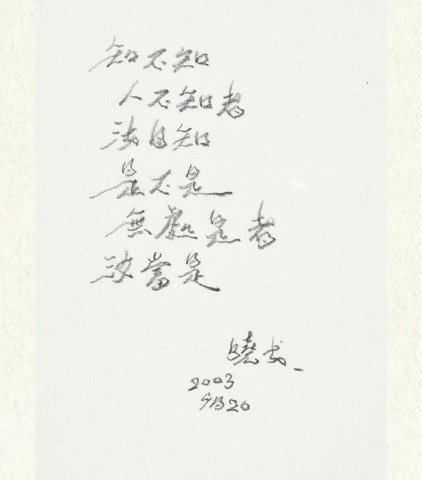 知不知
人不知者
汝自知
是不是
無處是者
汝當是
曉書
2003
9/B20